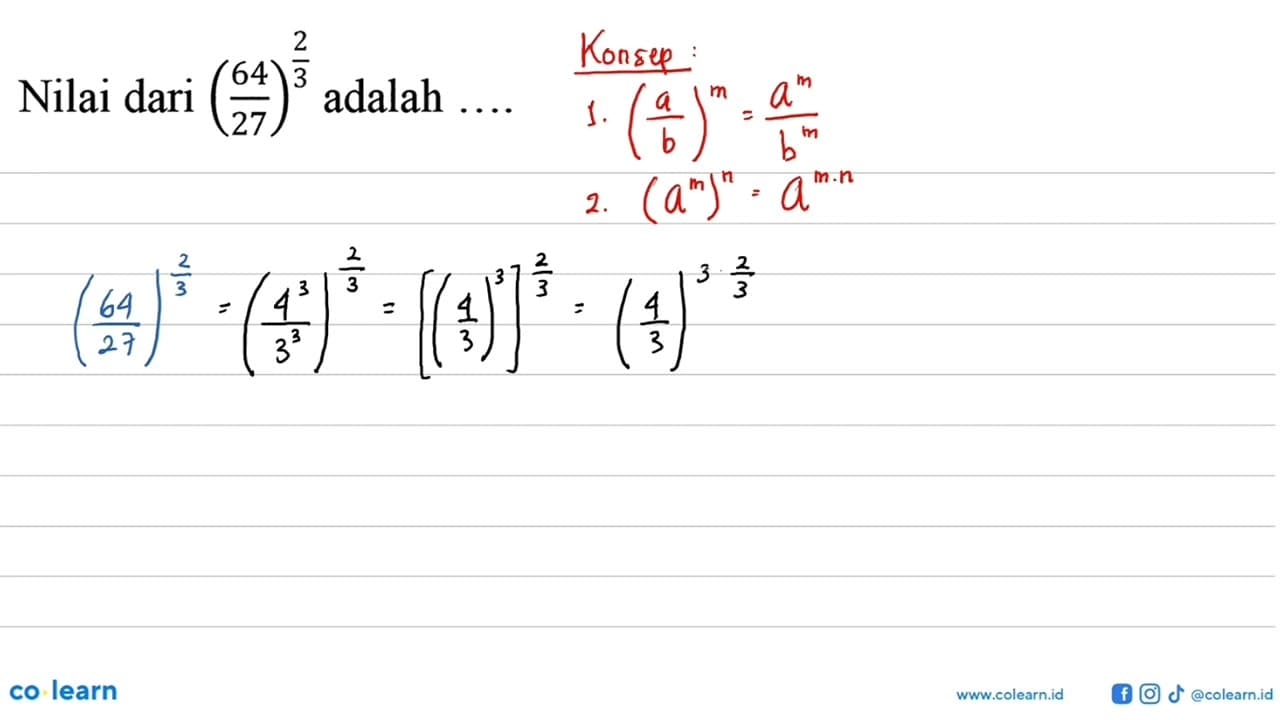 Nilai dari (64/27)^(2/3) adalah ....
Konsep :
1. (a/b)^m = a^m/b^m
2. (a^m)^n = a^(m.n)
(64/27)^(2/3) = (4^3/3^3)^(2/3) = [(4/3)^3]^(2/3) = (4/3)^(3 · 2/3)
co learn
www.colearn.id
@colearn.id